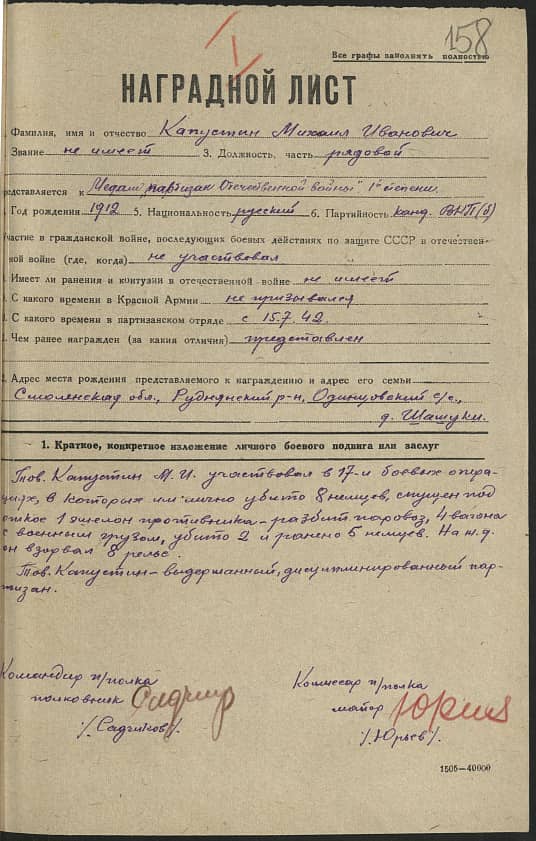 158
Все графы заполнять полностью
НАГРАДНОЙ ЛИСТ
Фамилия, имя и отчество Капустин Михаил Иванович
Звание не имеет 3. Должность, часть рядовой
редставляется к Медали "партизан Отечественной войны" 1й степени.
. Год рождения 1912 5. Национальность русский 6. Партийность канд. ВКП(б)
Участие в гражданской войне, последующих боевых действиях по защите СССР в отечествен-
ной войне (где, когда) не участвовал
. Имеет ли ранения и контузии в отечественной войне не имеет
. С какого времени в Красной Армии не призывался
. С какого времени в партизанском отряде с 15.7.42.
. Чем ранее награжден (за какия отличия) представлен
2. Адрес места рождения представляемого к награждению и адрес его семьи
Смоленская обл., Руднянский р-н, Одинцовский с/с,
д. Шашуки.
1. Краткое, конкретное изложение личного боевого подвига или заслуг
Тов. Капустин М. И. участвовал в 17-и боевых опера-
циях, в которых им лично убито 8 немцев, спущен под
откос 1 эшелон противника – разбит паровоз, 4 вагона
с военным грузом, убито 2 и ранено 5 немцев. На ж.д.
он взорвал 8 рельс.
Тов. Капустин – выдержанный, дисциплинированный пар-
тизан.
Командир п/полка
полковник
/Садчиков/.
Комиссар п/полка
майор Юрьев
/Юрьев/.
1505—40000